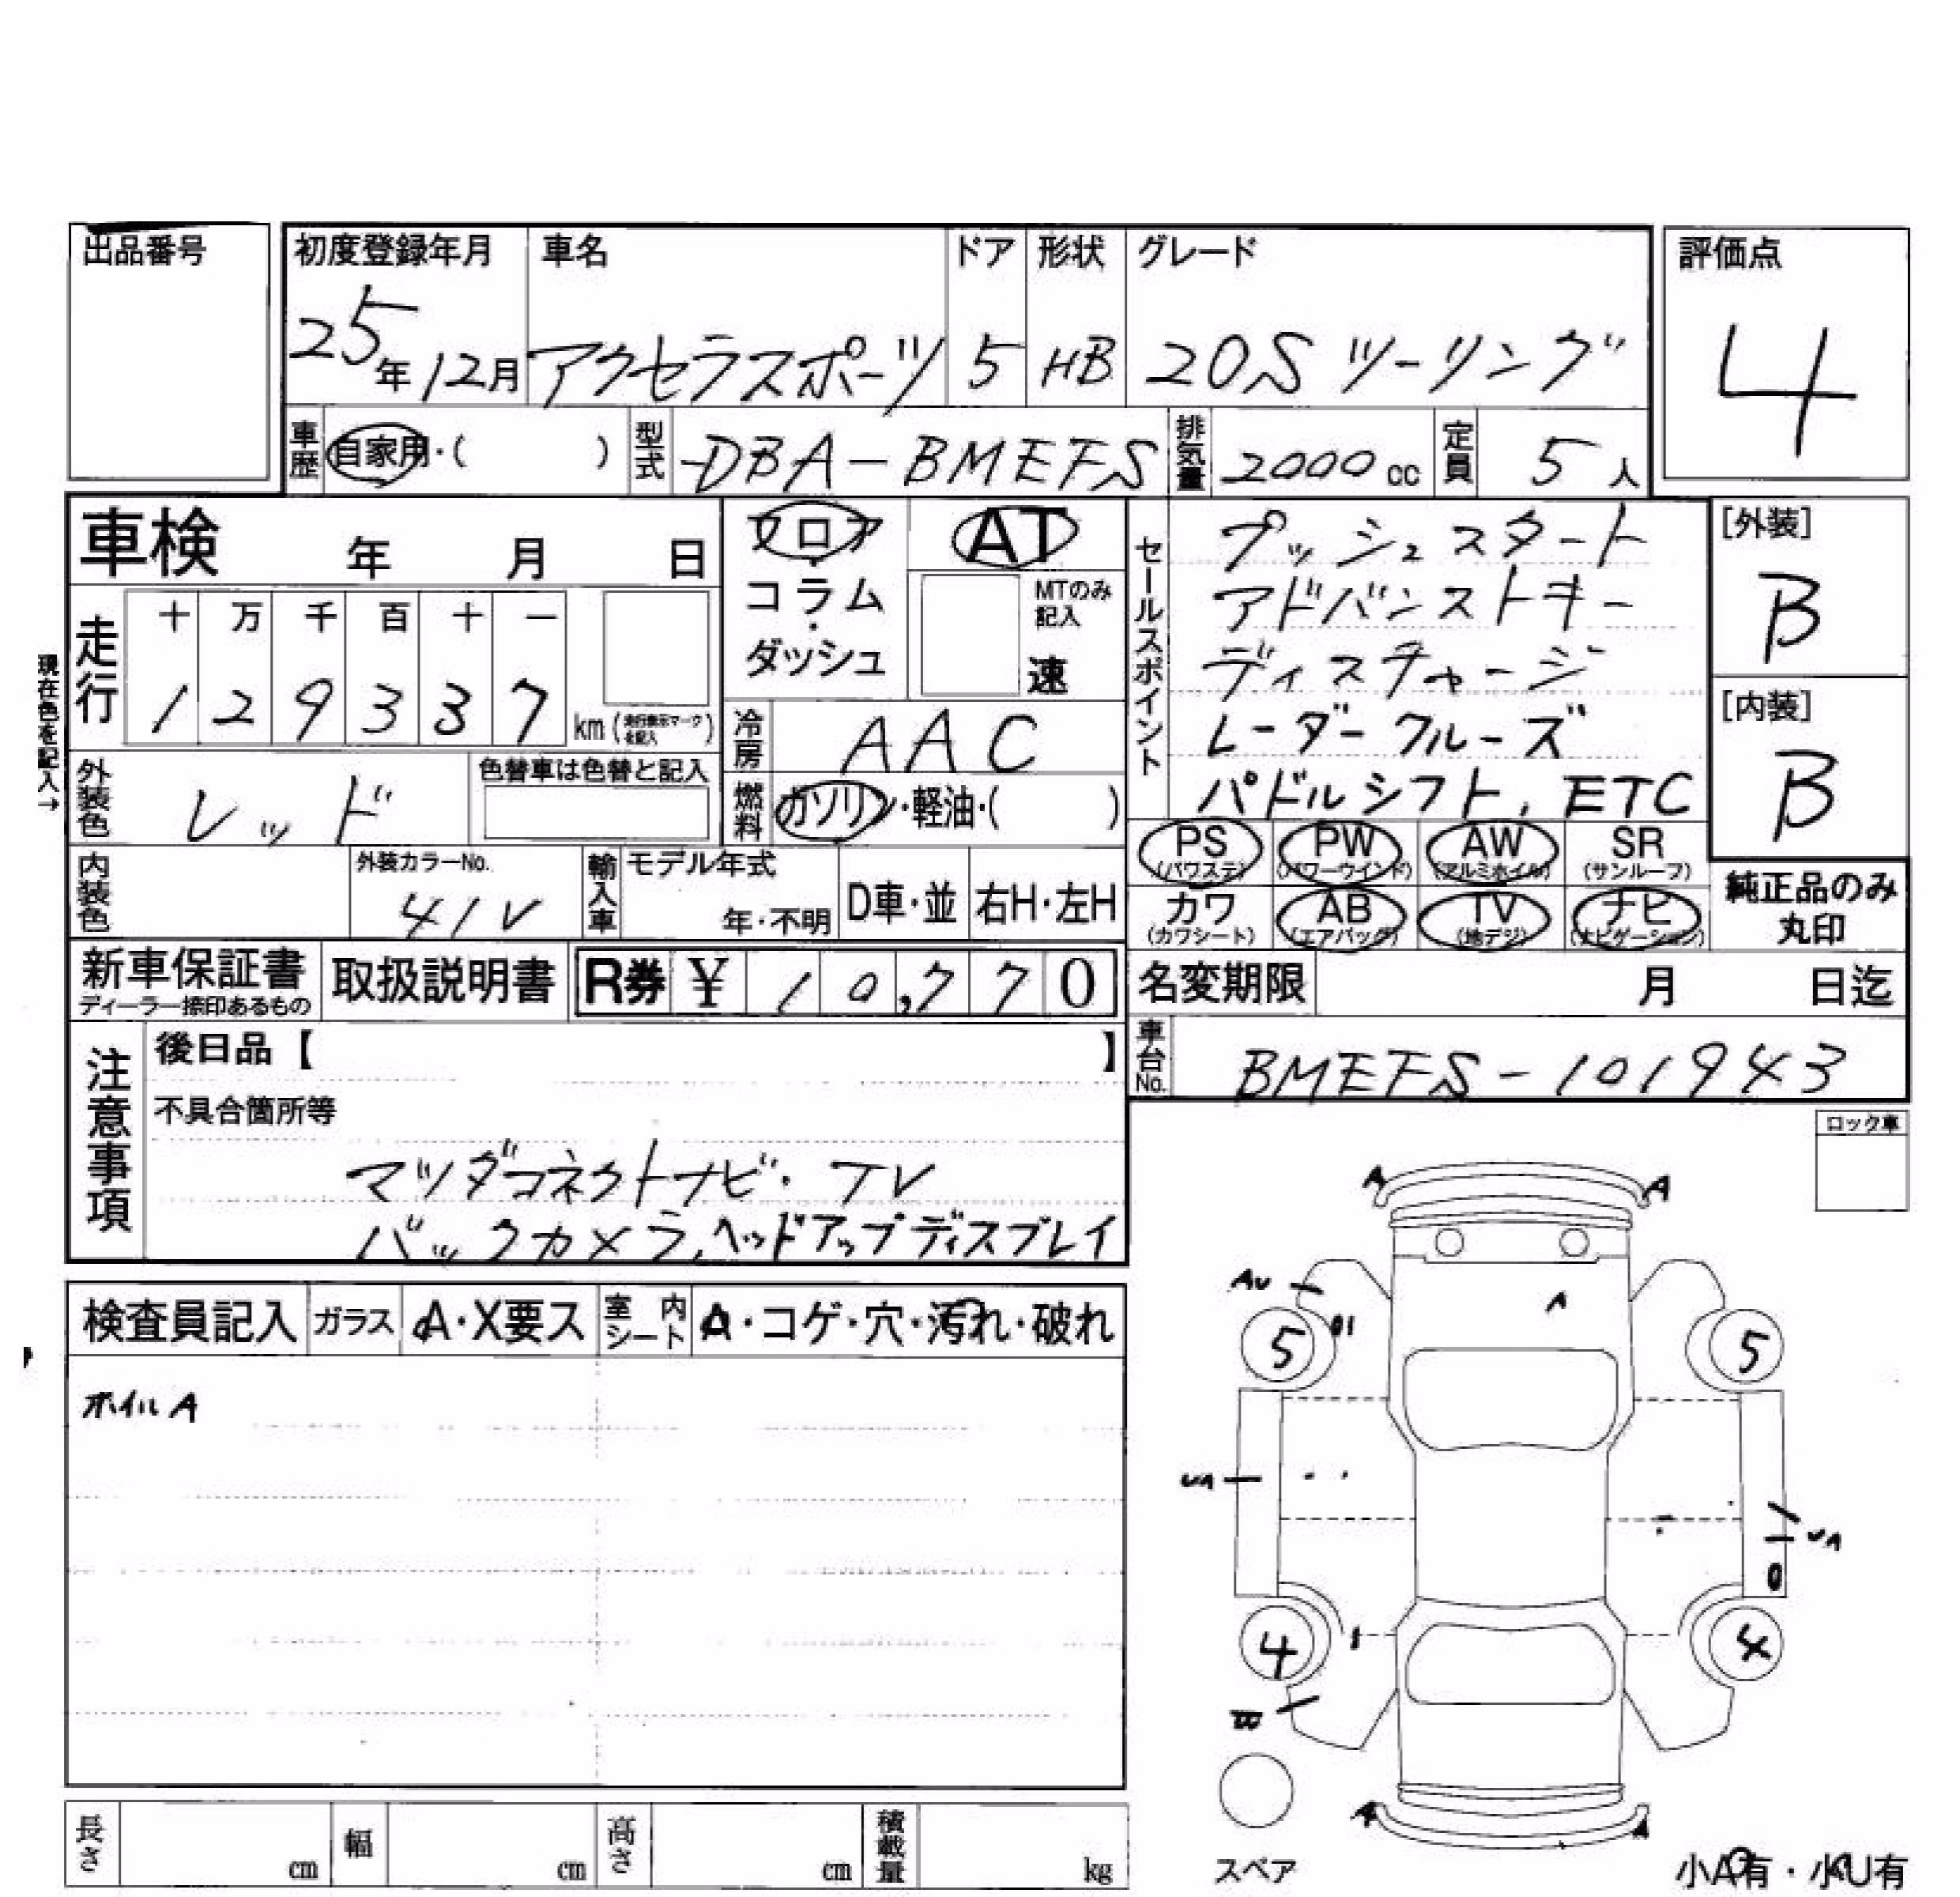 出品番号
初度登録年月 車名 ドア 形状 グレード 評価点
25年12月 アクセラスポーツ 5 HB 20Sツーリング 4
車歴 自家用・( ) 型式 DBA-BMEFS 排気量 2000cc 定員 5人
車検 年 月 日
フロア・コラム・ダッシュ
AT
MTのみ記入
速
セールスポイント
プッシュスタート
アドバンストキー
ディスチャージ
レーダークルーズ
パドルシフト, ETC
[外装]
B
[内装]
B
現在色を記入→
走行 十 万 千 百 十 一
1 2 9 3 3 7 km (走行表示マークを記入)
冷房 AAC
外装色 レッド 色替車は色替と記入
燃料 ガソリン・軽油・( )
PS (パワステ) PW (パワーウインド) AW (アルミホイル) SR (サンルーフ)
カワ (カワシート) AB (エアバッグ) TV (地デジ) ナビ (ナビゲーション)
純正品のみ丸印
内装色 外装カラーNo. 41V 輸入車 モデル年式 年・不明 D車・並 右H・左H
新車保証書 ディーラー捺印あるもの 取扱説明書 R券 ¥ 10,770
名変期限 月 日迄
車台No. BMEFS-101943
注意事項
後日品【 】
不具合箇所等
マツダコネクトナビ・TV
バックカメラ,ヘッドアップディスプレイ
ロック車
検査員記入 ガラス A・X要ス 室内シート A・コゲ・穴・汚れ・破れ
ホイルA
A A
AU
A
5 5
UA
UA
4 4
A A
スペア
長さ cm 幅 cm 高さ cm 積載量 kg
小A有・小U有